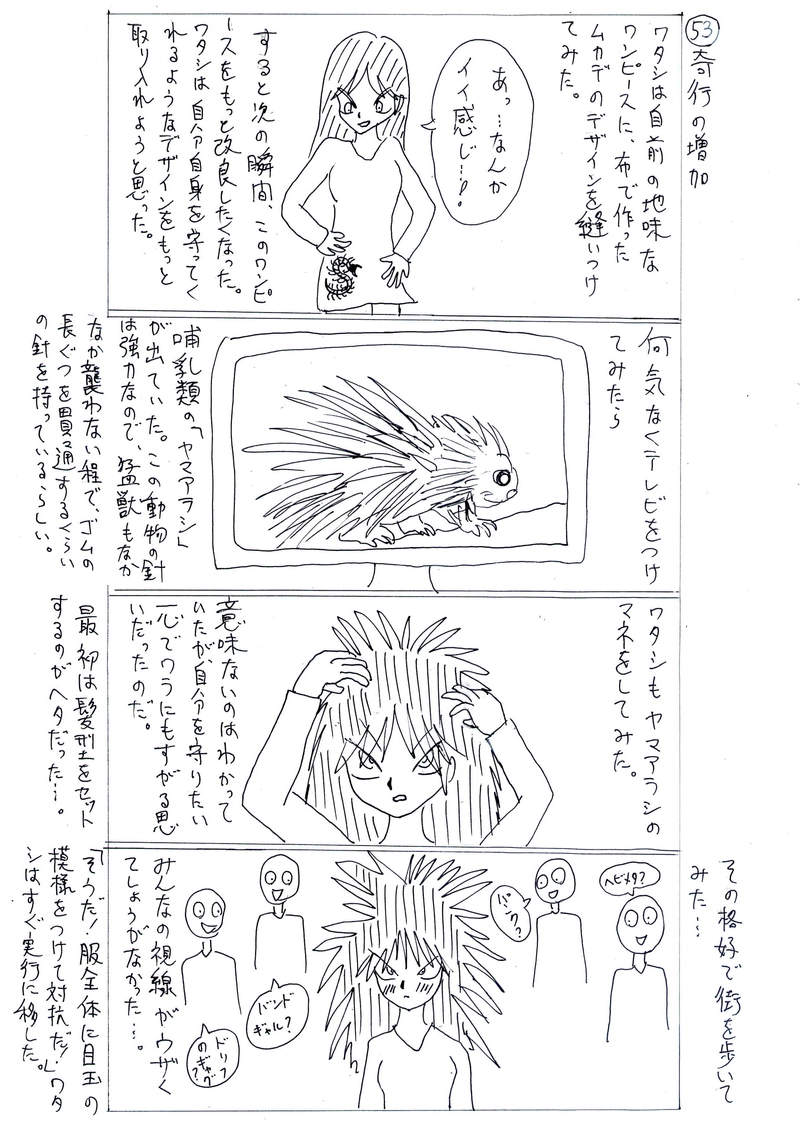 53 奇行の増加
ワタシは自前の地味な
ワンピースに、布で作った
ムカデのデザインを縫いつけ
てみた。
あっ…なんか
イイ感じ…!。
すると次の瞬間、このワンピ
ースをもっと改良したくなった。
ワタシは自分自身を守ってく
れるようなデザインをもっと
取り入れようと思った。
何気なくテレビをつけ
てみたら
哺乳類の「ヤマアラシ」
が出ていた。この動物の針
は強力なので、猛獣もなか
なか襲わない程で、ゴムの
長ぐつを貫通するくらい
の針を持っているらしい。
ワタシもヤマアラシの
マネをしてみた。
意味ないのはわかって
いたが、自分を守りたい
一心でワラにもすがる思
いだったのだ。
最初は髪型をセット
するのがヘタだった…。
その格好で街を歩いて
みた…
ヘビメタ?
パンク?
バンド
ギャル?
ドリフ
のギャグ?
みんなの視線がウザく
てしょうがなかった…。
「そうだ!服全体に目玉の
模様をつけて対抗だ!」ワタ
シはすぐ実行に移した。